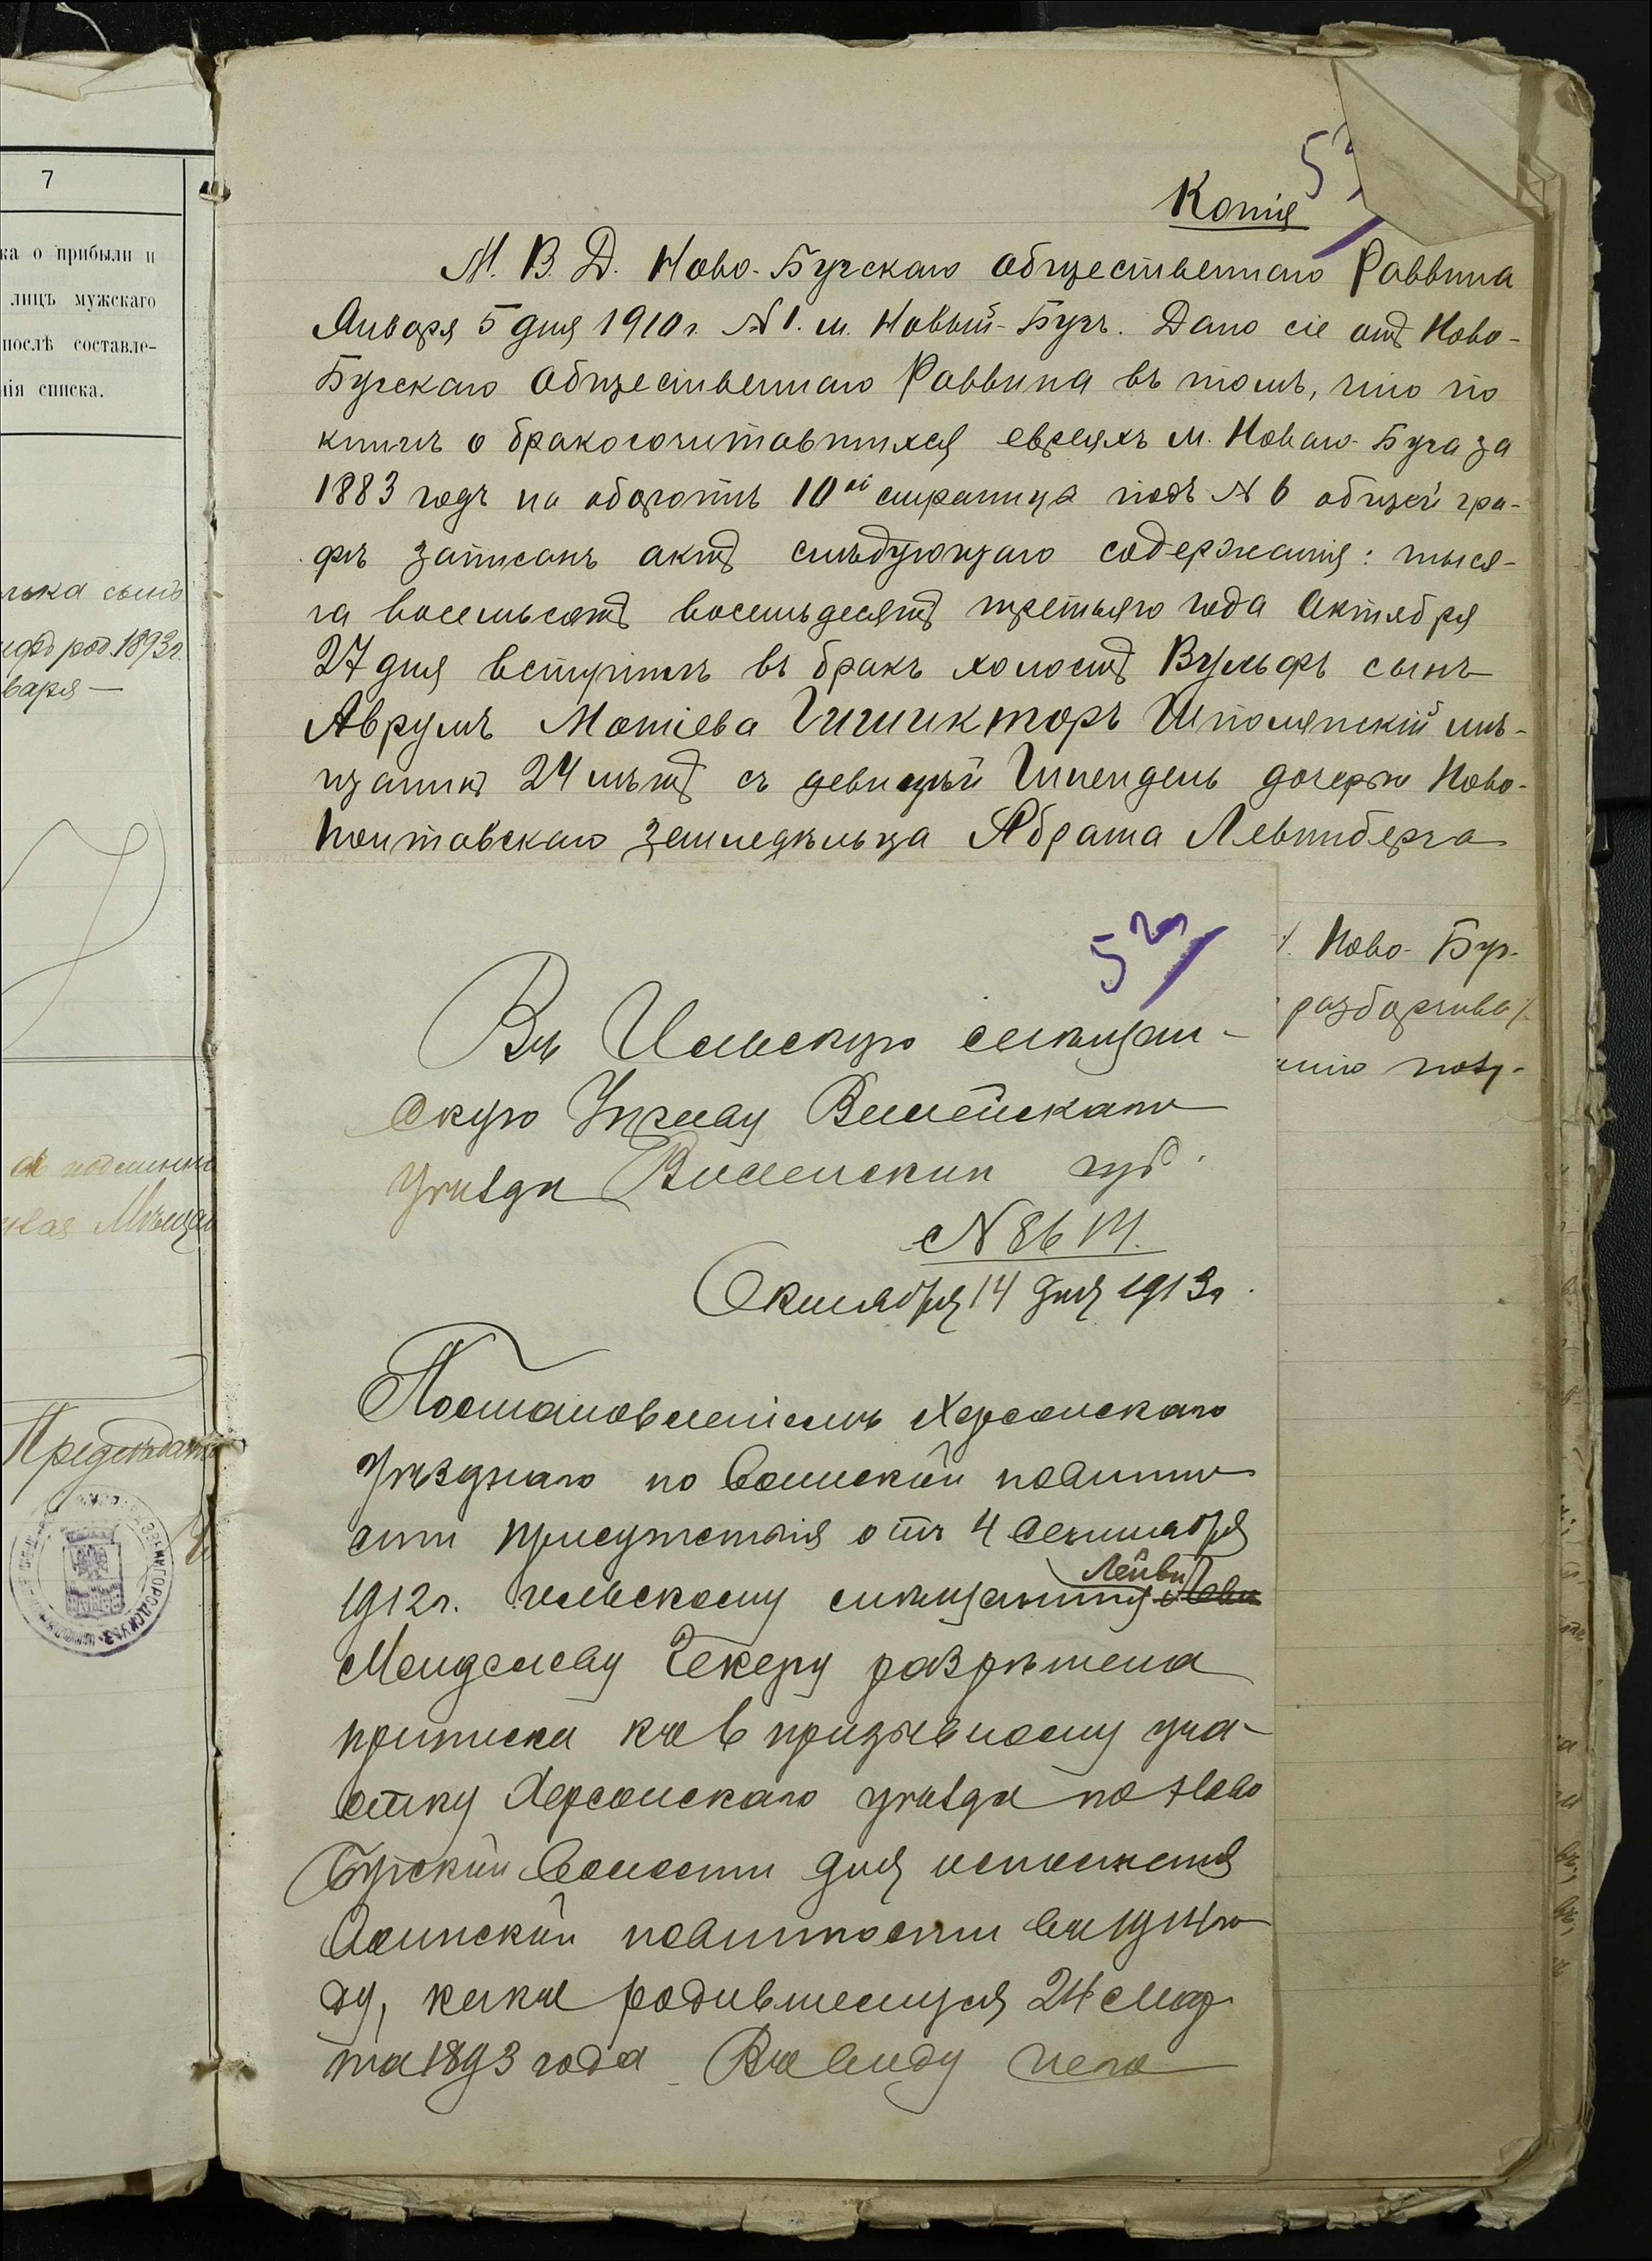 7
ка о прибыли и
лицъ мужскаго
послѣ составле-
нія списка.
сынъ
род. 1893г.
варя —
Предсѣдат
Копія
М. В. Д. Ново-Бугскаго общественнаго Раввина
Января 5 дня 1910 г. № 1. м. Новый-Бугъ. Дано сіе отъ Ново-
Бугскаго Общественнаго Раввина въ томъ, что по
книгѣ о бракосочитавшихся евреяхъ м. Новаго-Буга за
1883 годъ на оборотѣ 10ой страница подъ № 6 общей гра-
фѣ записанъ актъ слѣдующаго содержанія: тыся-
ча восемьсотъ восемьдесятъ третьяго года Октября
27 дня вступилъ въ бракъ холостъ Вульфъ сынъ
Аврумъ Мотіева Шполянскій мѣ-
щанинъ 24 лѣтъ съ девицей Шпендель дочерью Ново-
Полтавскаго земледѣльца Абрама Левинберга
Ново-Буг-
разборчива/.
нію полу-
53
Въ Ильскую мѣщан-
скую Управу Вилейскаго
уѣзда Виленской губ.
№ 8614.
Октября 14 дня 1913 г.
Постановленіемъ Херсонскаго
Уѣзднаго по воинской повинно
сти присутствія отъ 4 Сентября
1912 г. Ильскому мѣщанину Лейви
Менделеву Чекеру разрѣшена
приписка къ 6 призывному уча-
стку Херсонскаго уѣзда по Ново
Бугской волости для исполненія
Воинской повинности въ 1914 го
ду, какъ родившемуся 24 Мар
та 1893 года Въ виду чего